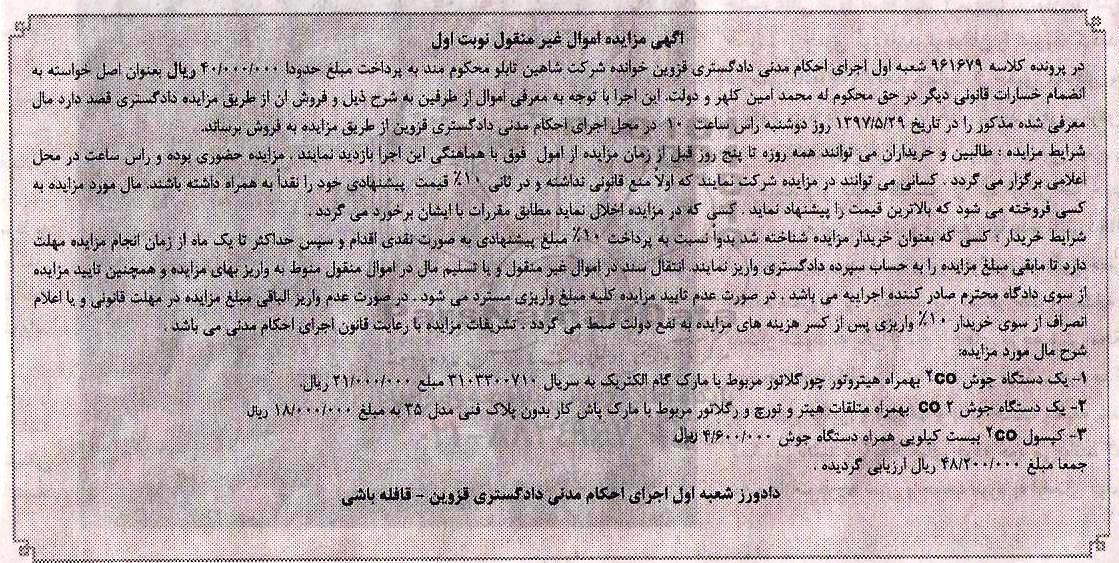 اگهی مزایده اموال غیر منقول نوبت اول
در پرونده کلاسه ۹۶۱۶۷۹ شعبه اول اجرای احکام مدنی دادگستری قزوین خوانده شرکت شاهین تابلو محکوم مند به پرداخت مبلغ حدودا ۴۰/۰۰۰/۰۰۰ ریال بعنوان اصل خواسته به
انضمام خسارات قانونی دیگر در حق محکوم له محمد امین کلهر و دولت. این اجرا با توجه به معرفی اموال از طرفین به شرح ذیل و فروش ان از طریق مزایده دادگستری قصد دارد مال
معرفی شده مذکور را در تاریخ ۱۳۹۷/۵/۲۹ روز دوشنبه راس ساعت ۱۰ در محل اجرای احکام مدنی دادگستری قزوین از طریق مزایده به فروش برساند.
شرایط مزایده : طالبین و خریداران می توانند همه روزه تا پنج روز قبل از زمان مزایده از امول فوق با هماهنگی این اجرا بازدید نمایند . مزایده حضوری بوده و راس ساعت در محل
اعلامی برگزار می گردد . کسانی می توانند در مزایده شرکت نمایند که اولاً منع قانونی نداشته و در ثانی ۱۰٪ قیمت پیشنهادی خود را نقداً به همراه داشته باشند. مال مورد مزایده به
کسی فروخته می شود که بالاترین قیمت را پیشنهاد نماید . کسی که در مزایده اخلال نماید مطابق مقررات با ایشان برخورد می گردد .
شرایط خریدار : کسی که بعنوان خریدار مزایده شناخته شد بدواً نسبت به پرداخت ۱۰٪ مبلغ پیشنهادی به صورت نقدی اقدام و سپس حداکثر تا یک ماه از زمان انجام مزایده مهلت
دارد تا مابقی مبلغ مزایده را به حساب سپرده دادگستری واریز نمایند. انتقال سند در اموال غیر منقول و یا تسلیم مال در اموال منقول منوط به واریز بهای مزایده و همچنین تایید مزایده
از سوی دادگاه محترم صادر کننده اجراییه می باشد . در صورت عدم تایید مزایده کلیه مبلغ واریزی مسترد می شود . در صورت عدم واریز الباقی مبلغ مزایده در مهلت قانونی و یا اعلام
انصراف از سوی خریدار ۱۰٪ واریزی پس از کسر هزینه های مزایده به نفع دولت ضبط می گردد . تشریفات مزایده با رعایت قانون اجرای احکام مدنی می باشد .
شرح مال مورد مزایده:
۱- یک دستگاه جوش co۲ بهمراه هیتروتور چورگلاتور مربوط با مارک گام الکتریک به سریال ۳۱۰۳۲۰۰۷۱۰ مبلغ ۲۱/۰۰۰/۰۰۰ ریال.
۲- یک دستگاه جوش co ۲ بهمراه متلقات هیتر و تورچ و رگلاتور مربوط با مارک پاش کار بدون پلاک فنی مدل ۳۵ به مبلغ ۱۸/۰۰۰/۰۰۰ ریال
۳- کپسول co۲ بیست کیلویی همراه دستگاه جوش ۴/۶۰۰/۰۰۰ ریال
جمعا مبلغ ۴۸/۲۰۰/۰۰۰ ریال ارزیابی گردیده .
دادورز شعبه اول اجرای احکام مدنی دادگستری قزوین - قافله باشی